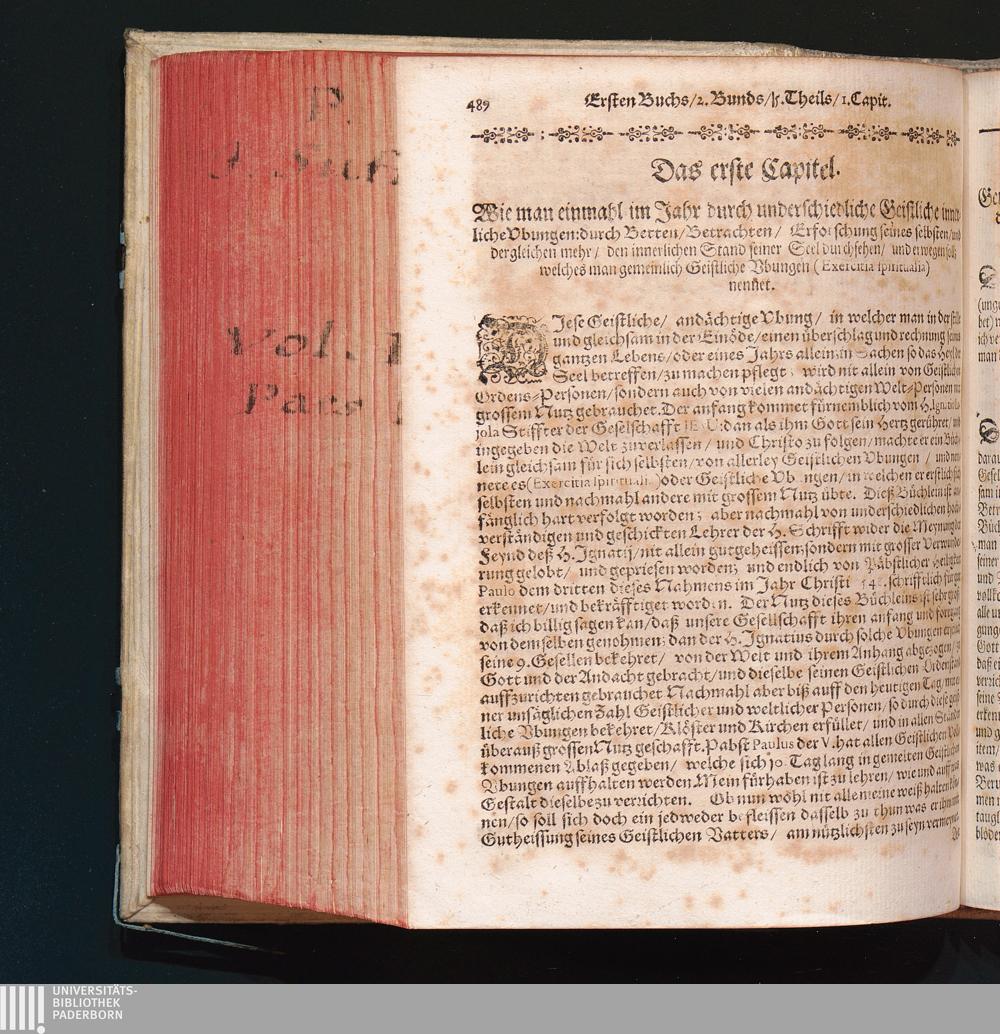 P.
J. Suf
Vol. I
Pars
489
Ersten Buchs/2. Bunds/5. Theils/1. Capit.
Das erste Capitel.
Wie man einmahl im Jahr durch underschiedliche Geistliche inner
liche Vbungen: durch Betten/Betrachten/ Erforschung seines selbsten/und
dergleichen mehr/ den innerlichen Stand seiner Seel durchsehen/ und erwegen soll;
welches man gemeinlich Geistliche Vbungen (Exercitia spiritualia)
nennet.
DJese Geistliche/ andächtige Vbung/ in welcher man in der stille
und gleichsam in der Einöde/einen überschlag und rechnung seines
gantzen Lebens/oder eines Jahrs allein; in Sachen so das Heyl der
Seel betreffen/zu machen pflegt; wird nit allein von Geistlichen
Ordens-Personen/sondern auch von vielen andächtigen Welt-Personen mit
grossem Nutz gebrauchet. Der anfang kommet fürnemblich vom H. Ignatio
jola Stiffter der Geselschafft JESU: dan als ihm Gott sein Hertz gerühret/ und
ingegeben die Welt zuverlassen/ und Christo zu folgen/ machte er ein Büch-
lein gleichsam für sich selbsten/von allerley Geistlichen Vbungen/ und nen-
nete es (Exercitia spiritualia) oder Geistliche Vbungen/in welchen er erstlich sich
selbsten und nachmahl andere mit grossem Nutz übte. Dieß Büchlein ist an-
fänglich hart verfolgt worden; aber nachmahl von underschiedlichen hoch-
verständigen und geschickten Lehrer der H. Schrifft wider die Meynung der
Feynd deß H. Ignatij/nit allein gutgeheissen; sondern mit grosser Verwunde-
rung gelobt/ und gepriesen worden; und endlich von Päbstlicher Heiligkeit
Paulo dem dritten dieses Nahmens im Jahr Christi schrifftlich für gut
erkennet/und bekräfftiget worden. Der Nutz dieses Büchleins ist sehr groß
daß ich billig sagen kan/daß unsere Gesellschafft ihren anfang und fortgang
von demselben genohmen; dan der H. Ignatius durch solche Vbungen erstlich
seine 9. Gesellen bekehret/ von der Welt und ihrem Anhang abgezogen/ zu
Gott und der Andacht gebracht/und dieselbe seinen Geistlichen Ordenstand
auffzurichten gebrauchet Nachmahl aber biß auff den heutigen Tag/ mit ei-
ner unsäglichen Zahl Geistlicher und weltlicher Personen/ so durch diese geist-
liche Vbungen bekehret/Klöster und Kirchen erfüllet/ und in allen Ständen
überauß grossen Nutz geschafft. Pabst Paulus der V. hat allen Geistlichen Voll-
kommenen Ablaß gegeben/ welche sich 10. Tag lang in gemelten Geistlichen
Vbungen auffhalten werden. Mein fürhaben ist zu lehren/ wie und auff was
Gestalt dieselbe zu verrichten. Ob nun wohl nit alle meine weiß halten kön-
nen/so soll sich doch ein jedweder befleissen dasselb zu thun was er ihm mit
Gutheissung seines Geistlichen Vatters/ am nützlichsten zu seyn vermeynet.
UNIVERSITÄTS-
BIBLIOTHEK
PADERBORN